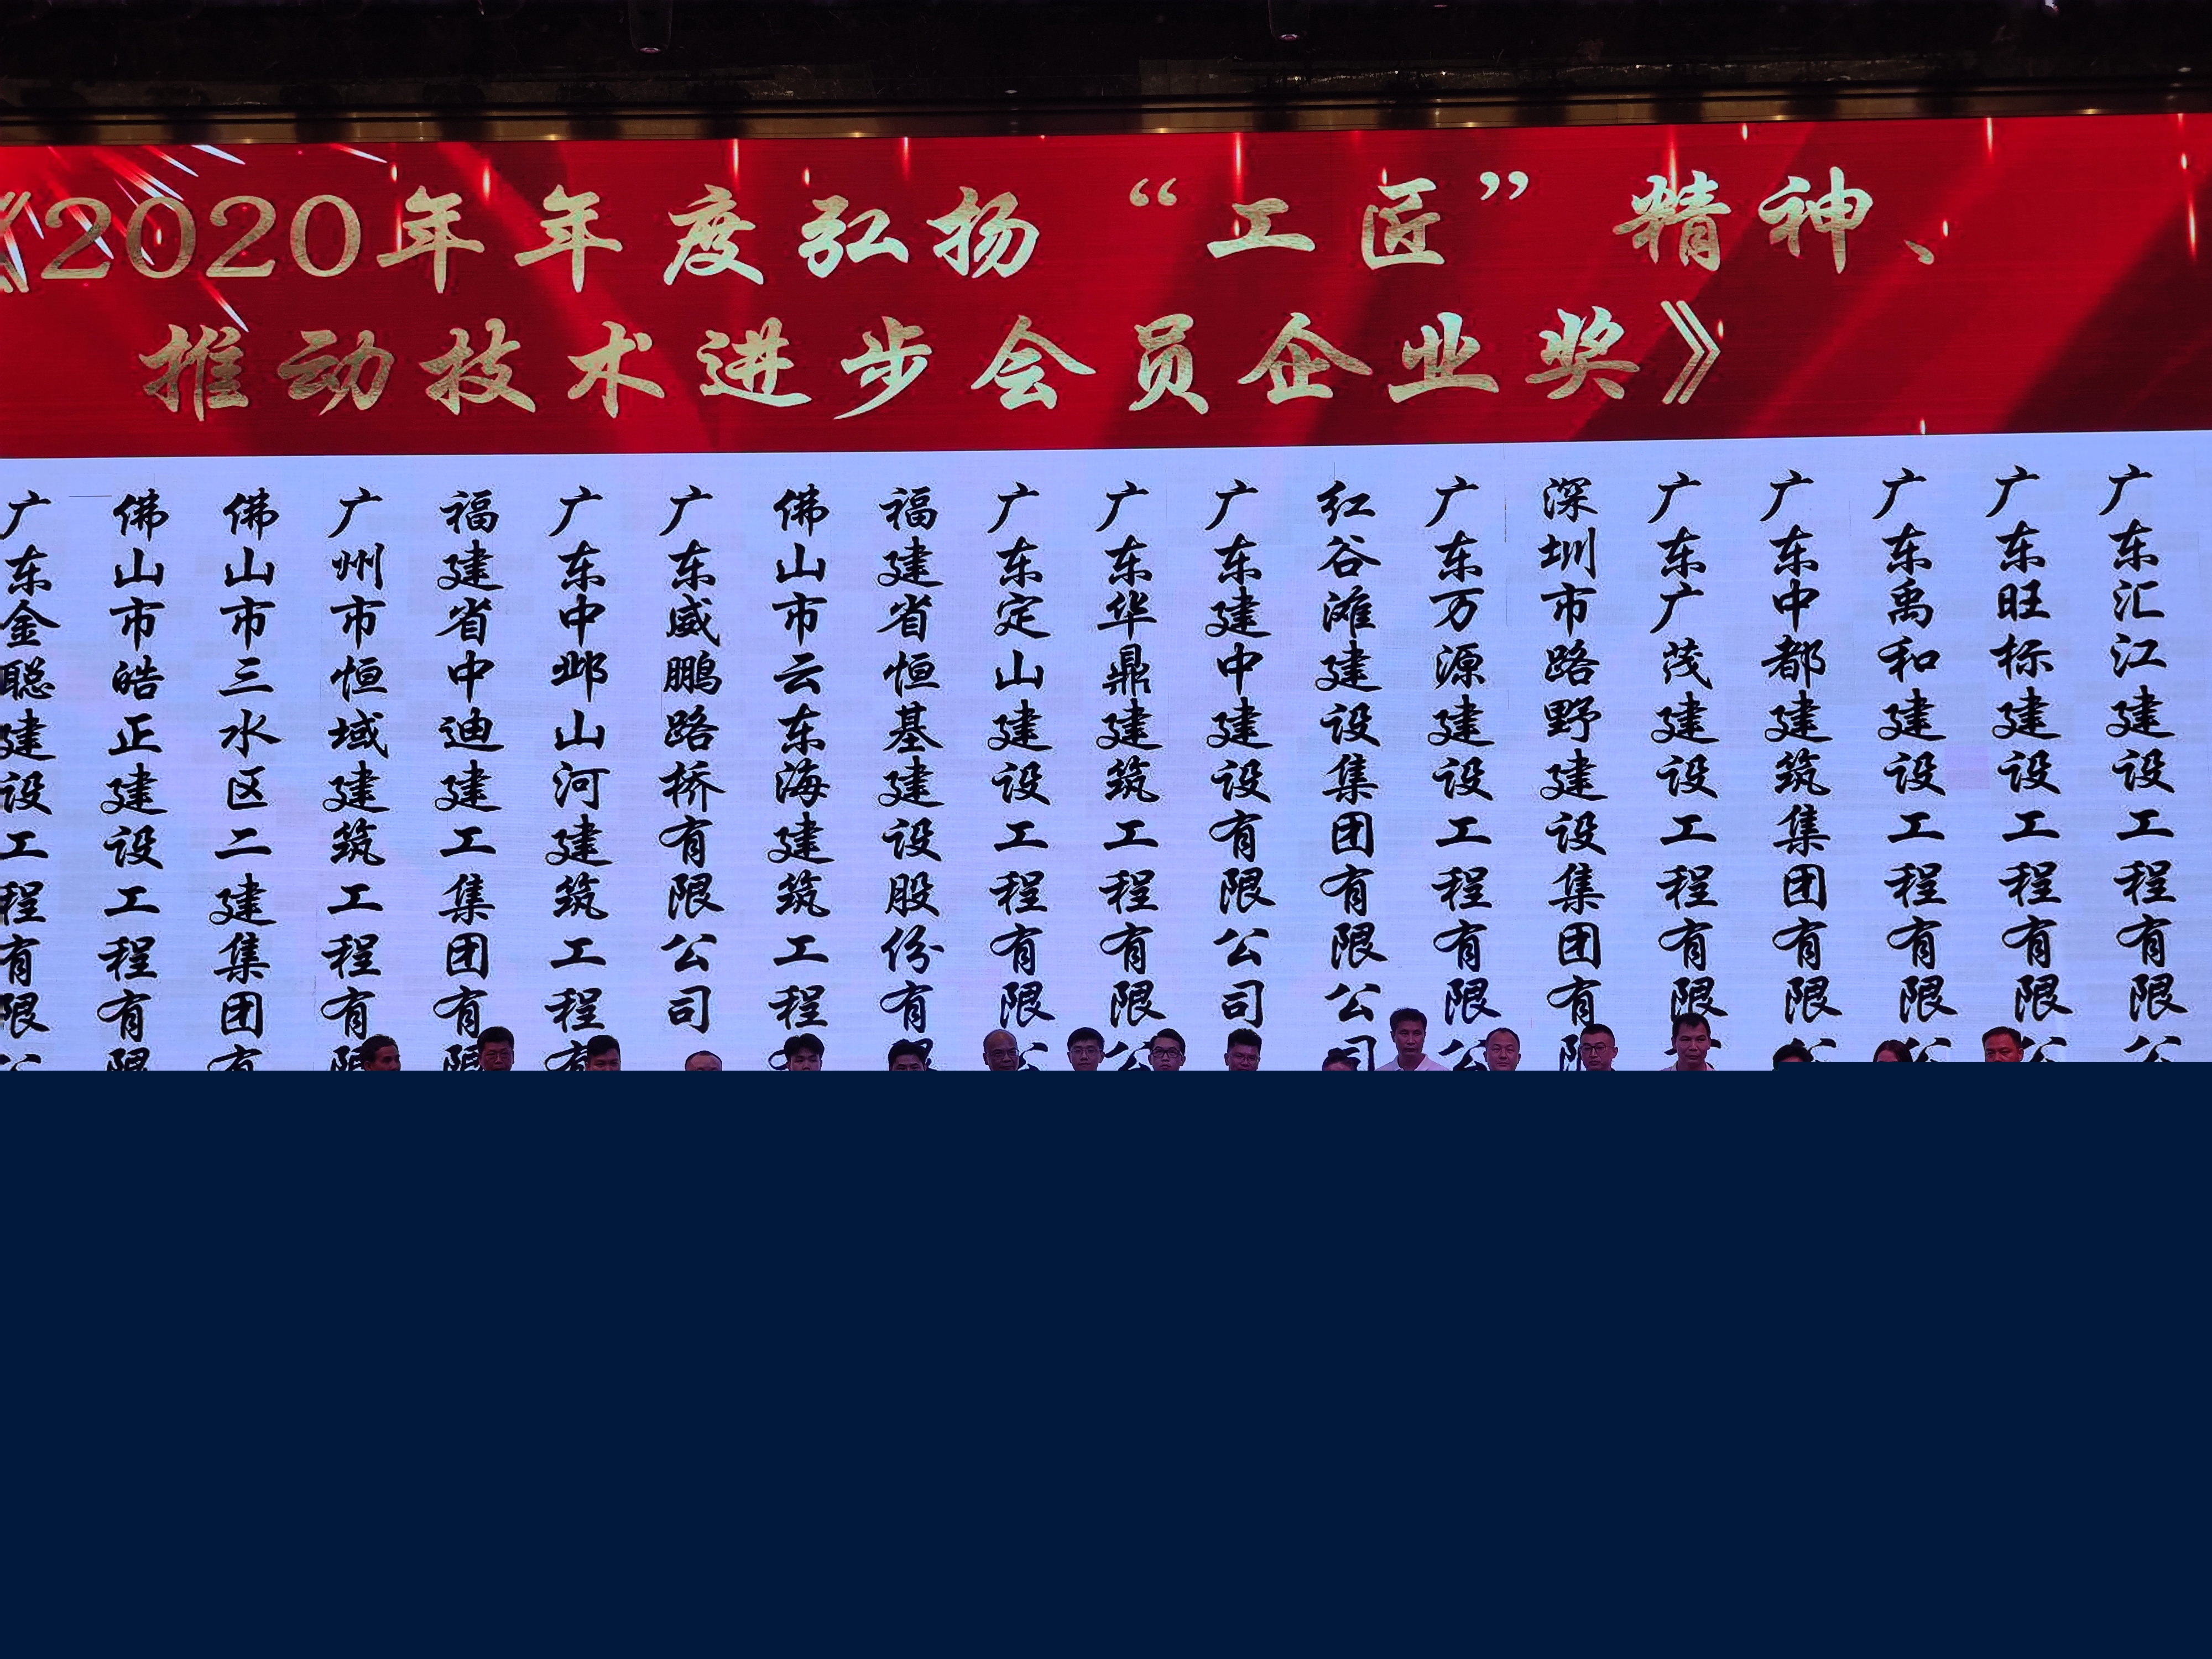 《2020年年度弘扬“工匠”精神、
推动技术进步会员企业奖》
广东金聪建设工程有限公
佛山市皓正建设工程有限
佛山市三水区二建集团有
广州市恒域建筑工程有限
福建省中迪建工集团有限
广东中邺山河建筑工程有
广东威鹏路桥有限公司
佛山市云东海建筑工程
福建省恒基建设股份有限
广东定山建设工程有限公
广东华鼎建筑工程有限公
广东建中建设有限公司
红谷滩建设集团有限公司
广东万源建设工程有限公
深圳市路野建设集团有限
广东广茂建设工程有限
广东中都建筑集团有限公
广东禹和建设工程有限公
广东旺标建设工程有限公
广东汇江建设工程有限公